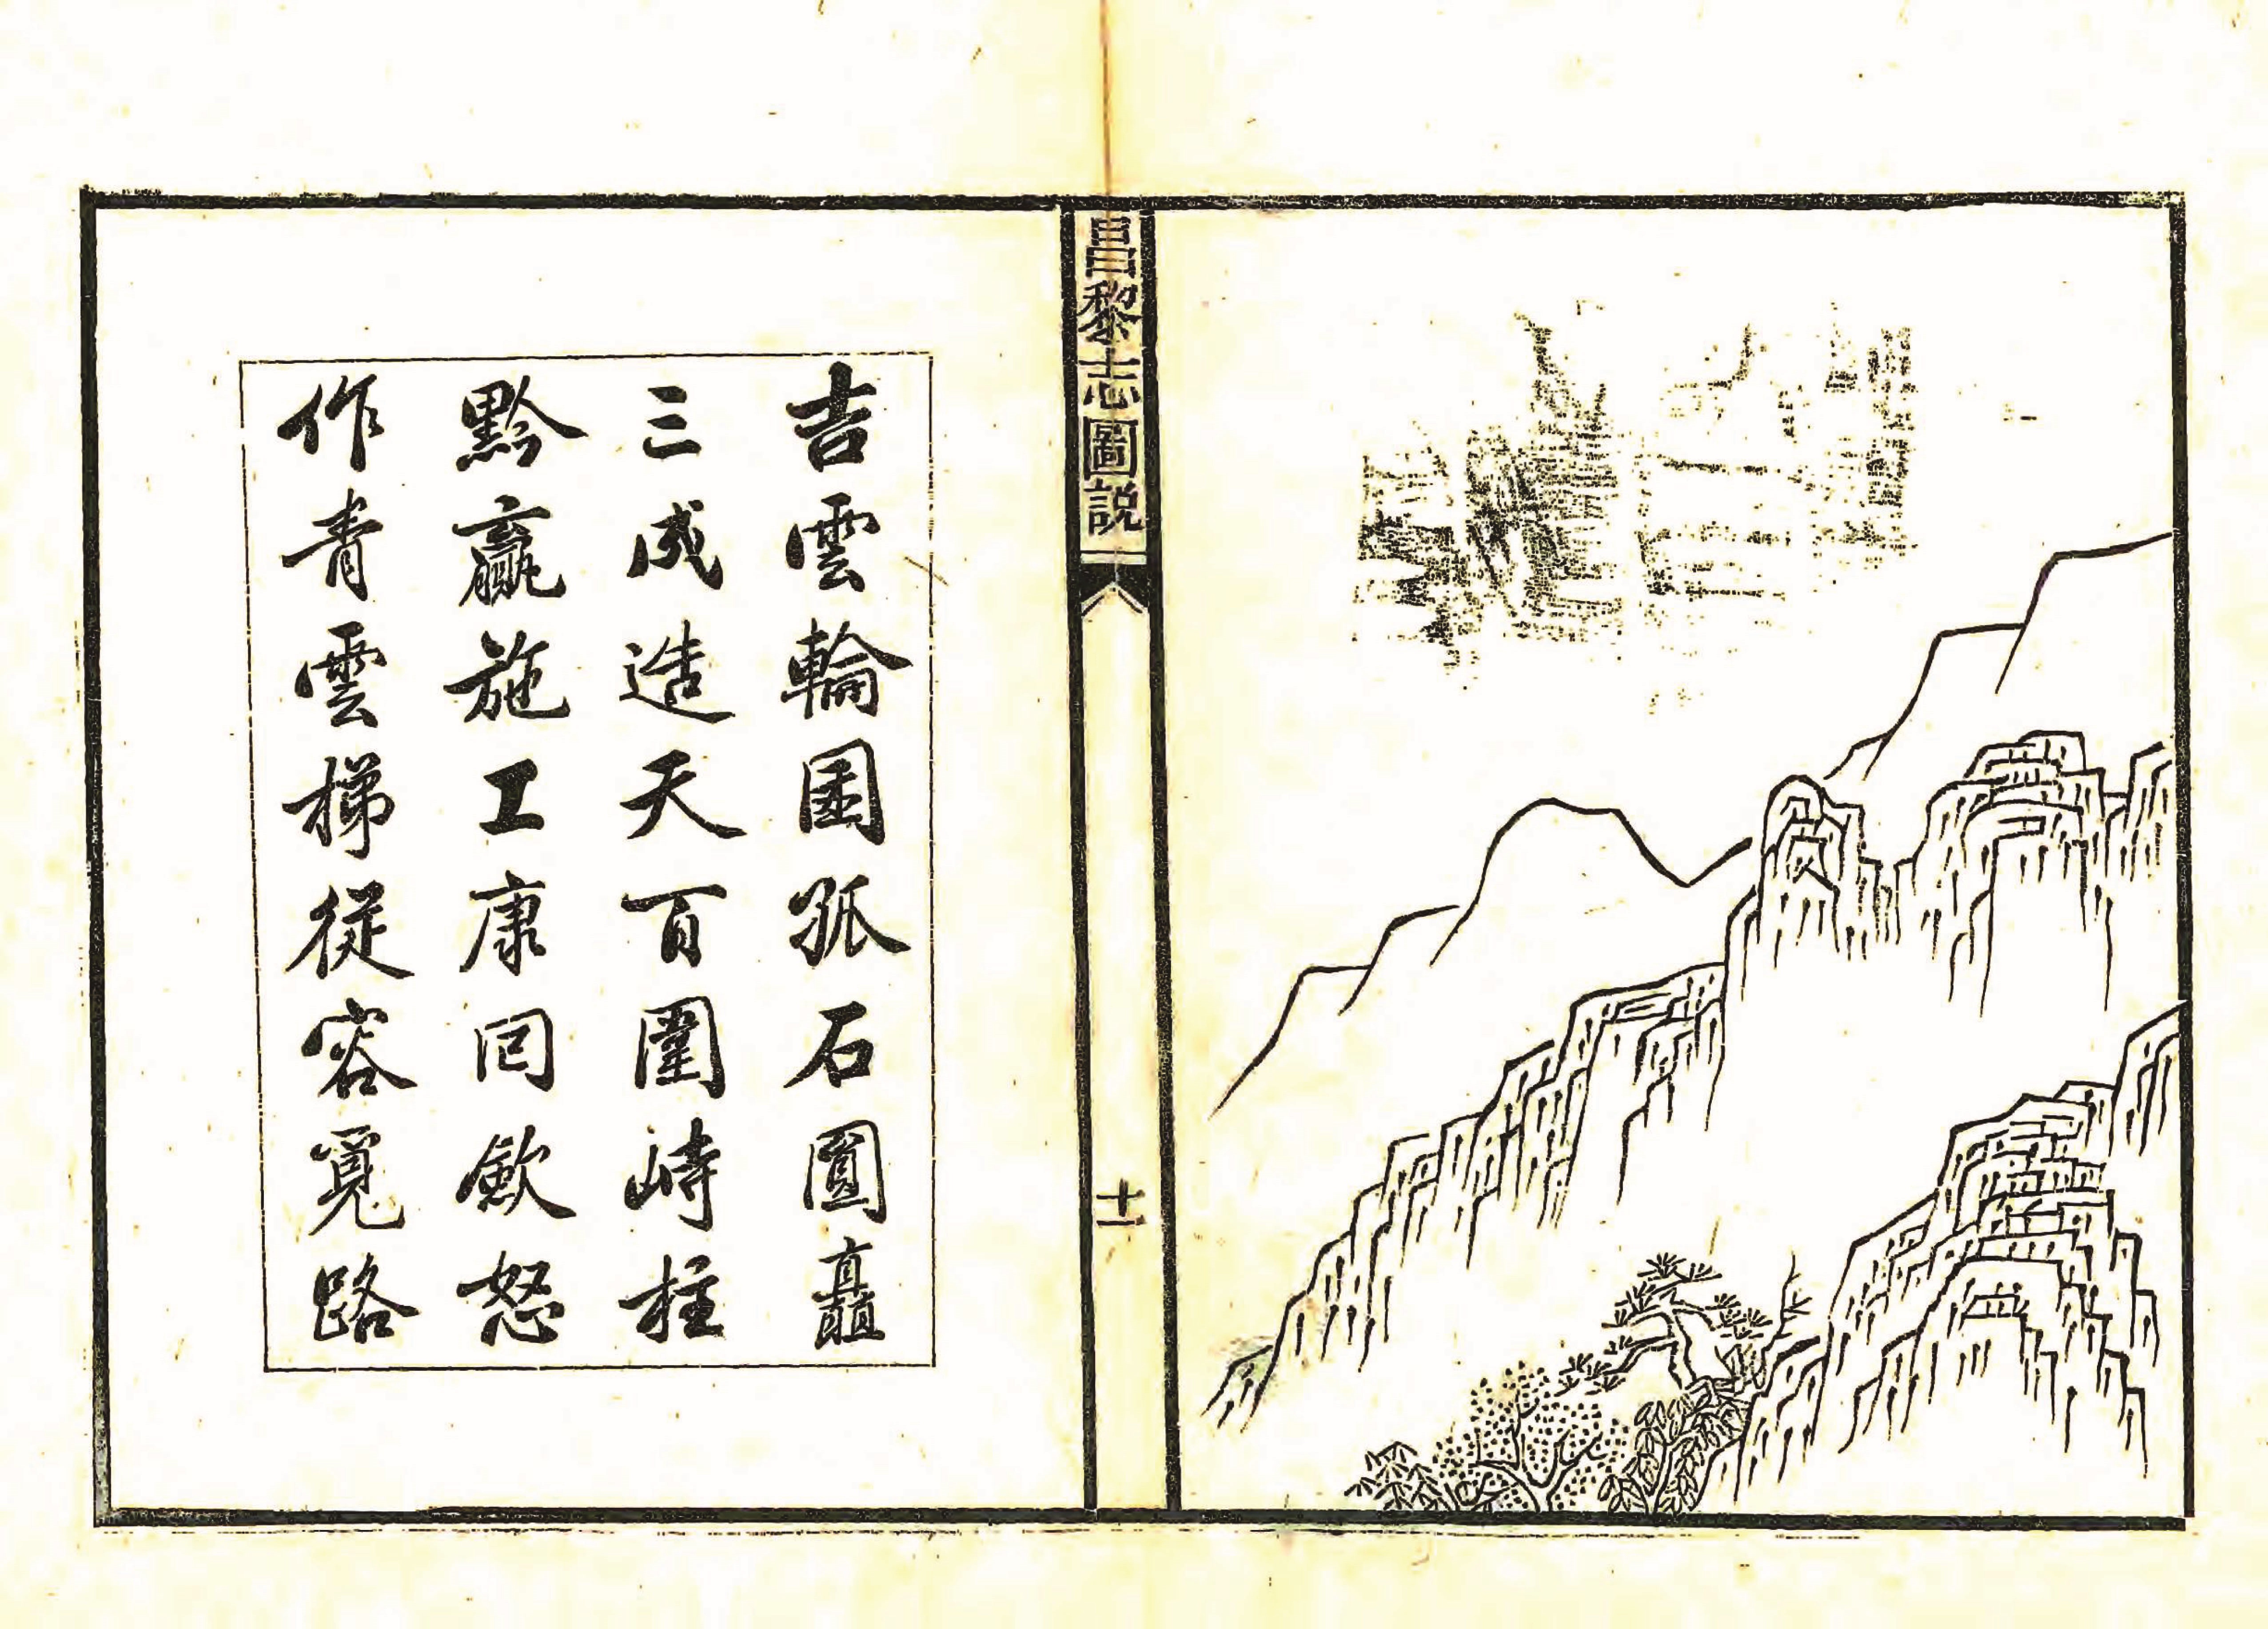 昌黎志圖説
十一
吉雲輪囷孤石圓矗
三成造天百圍峙柱
黔贏施工康囘歛怒
作青雲梯從容覓路